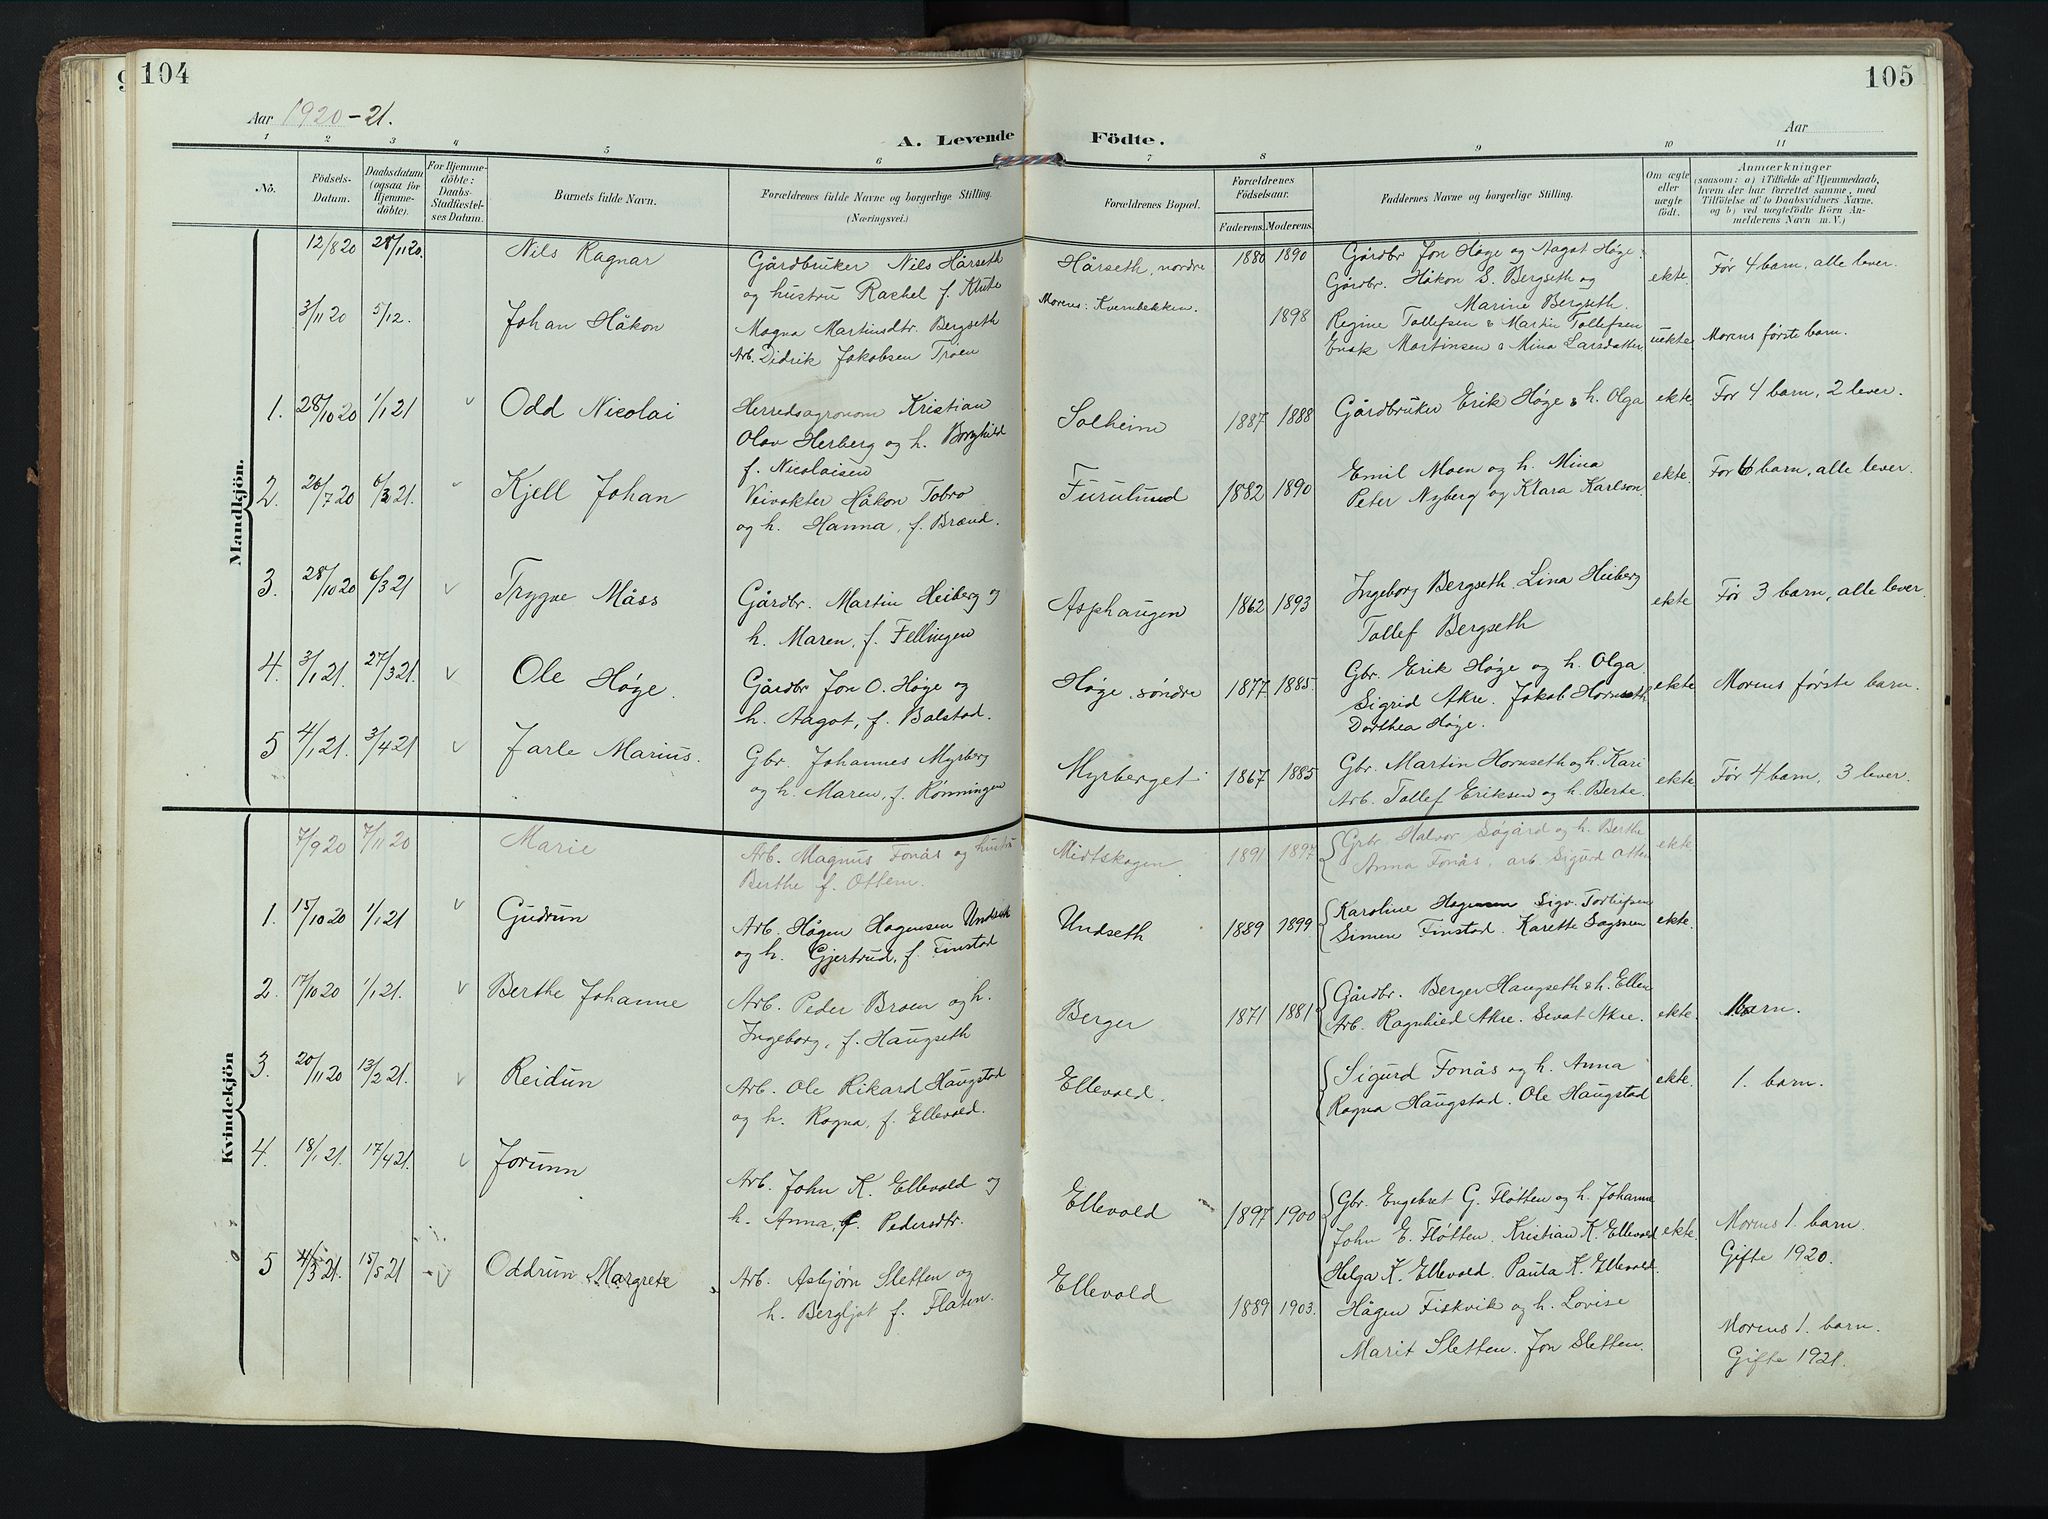 104
105
Aar 1920-21.
Aar
A. Levende Födte.
1 2 3 4 5 6 7 8 9 10 11
Nö.
Födsels-Datum.
Daabsdatum (ogsaa för Hjemmedöbte).
For Hjemmedöbte: Daabs-Stadfæstelses Datum.
Barnets fulde Navn.
Forældrenes fulde Navne og borgerlige Stilling. (Næringsvei.)
Forældrenes Bopæl.
Forældrenes Födselsaar.
Faderens. Moderens.
Faddernes Navne og borgerlige Stilling.
Om ægte eller uægte födt.
Anmærkninger (saasom: a) i Tilfælde af Hjemmedaab, hvem der har forrettet samme, med Tilföielse af to Daabsvidners Navne, og b) ved uægtefödte Börn Anmelderens Navn m. V.)
Mandkjön.
12/8 20 28/11 20. Nils Ragnar
Gårdbruker Nils Hårseth
og hustru Rachel f. Klute
Hårseth, nordre 1880 1890
Gårdbr Jon Høge og Aagot Høge.
Gårdbr. Håkon S. Bergseth og
Marine Bergseth.
ekte. Før 4 barn, alle lever.
3/11 20 5/12. Johan Håkon
Magna Martinsdtr. Bergseth
Arb. Didrik Jakobsen Trøen
Morens: Kvernbekken. 1898
Regine Tollefsen & Martin Tollefsen
Enok Martinsen & Mina Larsdatter
uekte Morens første barn.
1. 28/10 20 1/1 21 v Odd Nicolai
Herredsagronom Kristian
Olav Herberg og h. Borghild
f. Nicolaisen
Solheim 1887 1888
Gårdbruker Erik Høge & h. Olga
ekte. Før 4 barn, 2 lever.
2. 26/7 20 6/3 21. Kjell Johan
Veivokter Håkon Tobro
og h. Hanna, f. Brænd.
Furulund 1882 1890
Emil Moen og h. Mina
Peter Nyberg og Klara Karlson
ekte. Før 6 barn, alle lever.
3. 28/10 20 6/3 21 v Trygve Måss
Gårdbr. Martin Heiberg og
h. Maren, f. Fellingen
Asphaugen 1862 1893
Ingeborg Bergseth, Lina Heiberg
Tollef Bergseth
ekte Før 3 barn, alle lever.
4. 3/1 21. 27/3 21. v Ole Høge.
Gårdbr Jon O. Høge og
h. Aagot, f. Balstad.
Høge, søndre 1877 1885.
Gbr. Erik Høge og h. Olga
Sigrid Akre. Jakob Hornseth
Dorthea Høge.
ekte Morens første barn.
5 4/1 21. 3/4 21 v Jarle Marius.
Gbr. Johannes Myrberg
og h. Maren, f. Rønningen
Myrberget 1867 1885
Gbr. Martin Hornseth og h. Kari
Arb. Tollef Eriksen og h. Berte.
ekte Før 4 barn, 3 lever.
Kvindekjön
7/9 20 7/11 20 Marie
Arb. Magnus Fonås og hustru
Berthe f. Ottern.
Midtskogen 1891 1897
Grbr Halvor Søgård og h. Berthe
Anna Fonås, arb. Sigurd Otten
ekte
1. 15/10 20 1/1 21 v Gudrun
Arb. Hågen Hagensen Undseth
og h. Gjertrud, f. Finstad
Undseth 1889 1899
Karoline Hagensen Sigv. Torleifsen
Simen Finstad. Karette
ekte.
2. 17/10 20 1/1 21. v Berthe Johanne
Arb. Peder Broen og h.
Ingeborg, f. Haugseth
Berger 1871 1881
Gårdbr. Berger Haugseth & h. Ellen
Arb. Ragnhild Akre. Sevat Akre.
ekte. barn.
3. 20/11 20 13/2 21. v Reidun
Arb. Ole Rikard Haugstad
og h. Ragna, f. Ellevold.
Ellevold.
Sigurd Fonås og h. Anna
Ragna Haugstad. Ole Haugstad
ekte. 1. barn.
4. 18/1 21. 17/4 21. v Jorunn
Arb. John K. Ellevold og
h. Anna, f. Pedersdtr.
Ellevold 1897 1900
Gbr. Engebret G. Fløtten og h. Johanne
John E. Fløtten. Kristian K. Ellevold
Helga K. Ellevold. Paula K. Ellevold.
ekte. Morens 1. barn.
Gifte 1920.
5 4/3 21. 15/5 21 v Oddrun Margrete
Arb. Asbjørn Sletten og
h. Bergljot f. Flaten.
Ellevold 1889 1903.
Hågen Fiskvik og h. Lovise
Marit Sletten. Jon Sletten.
Morens 1. barn.
Gifte 1921.